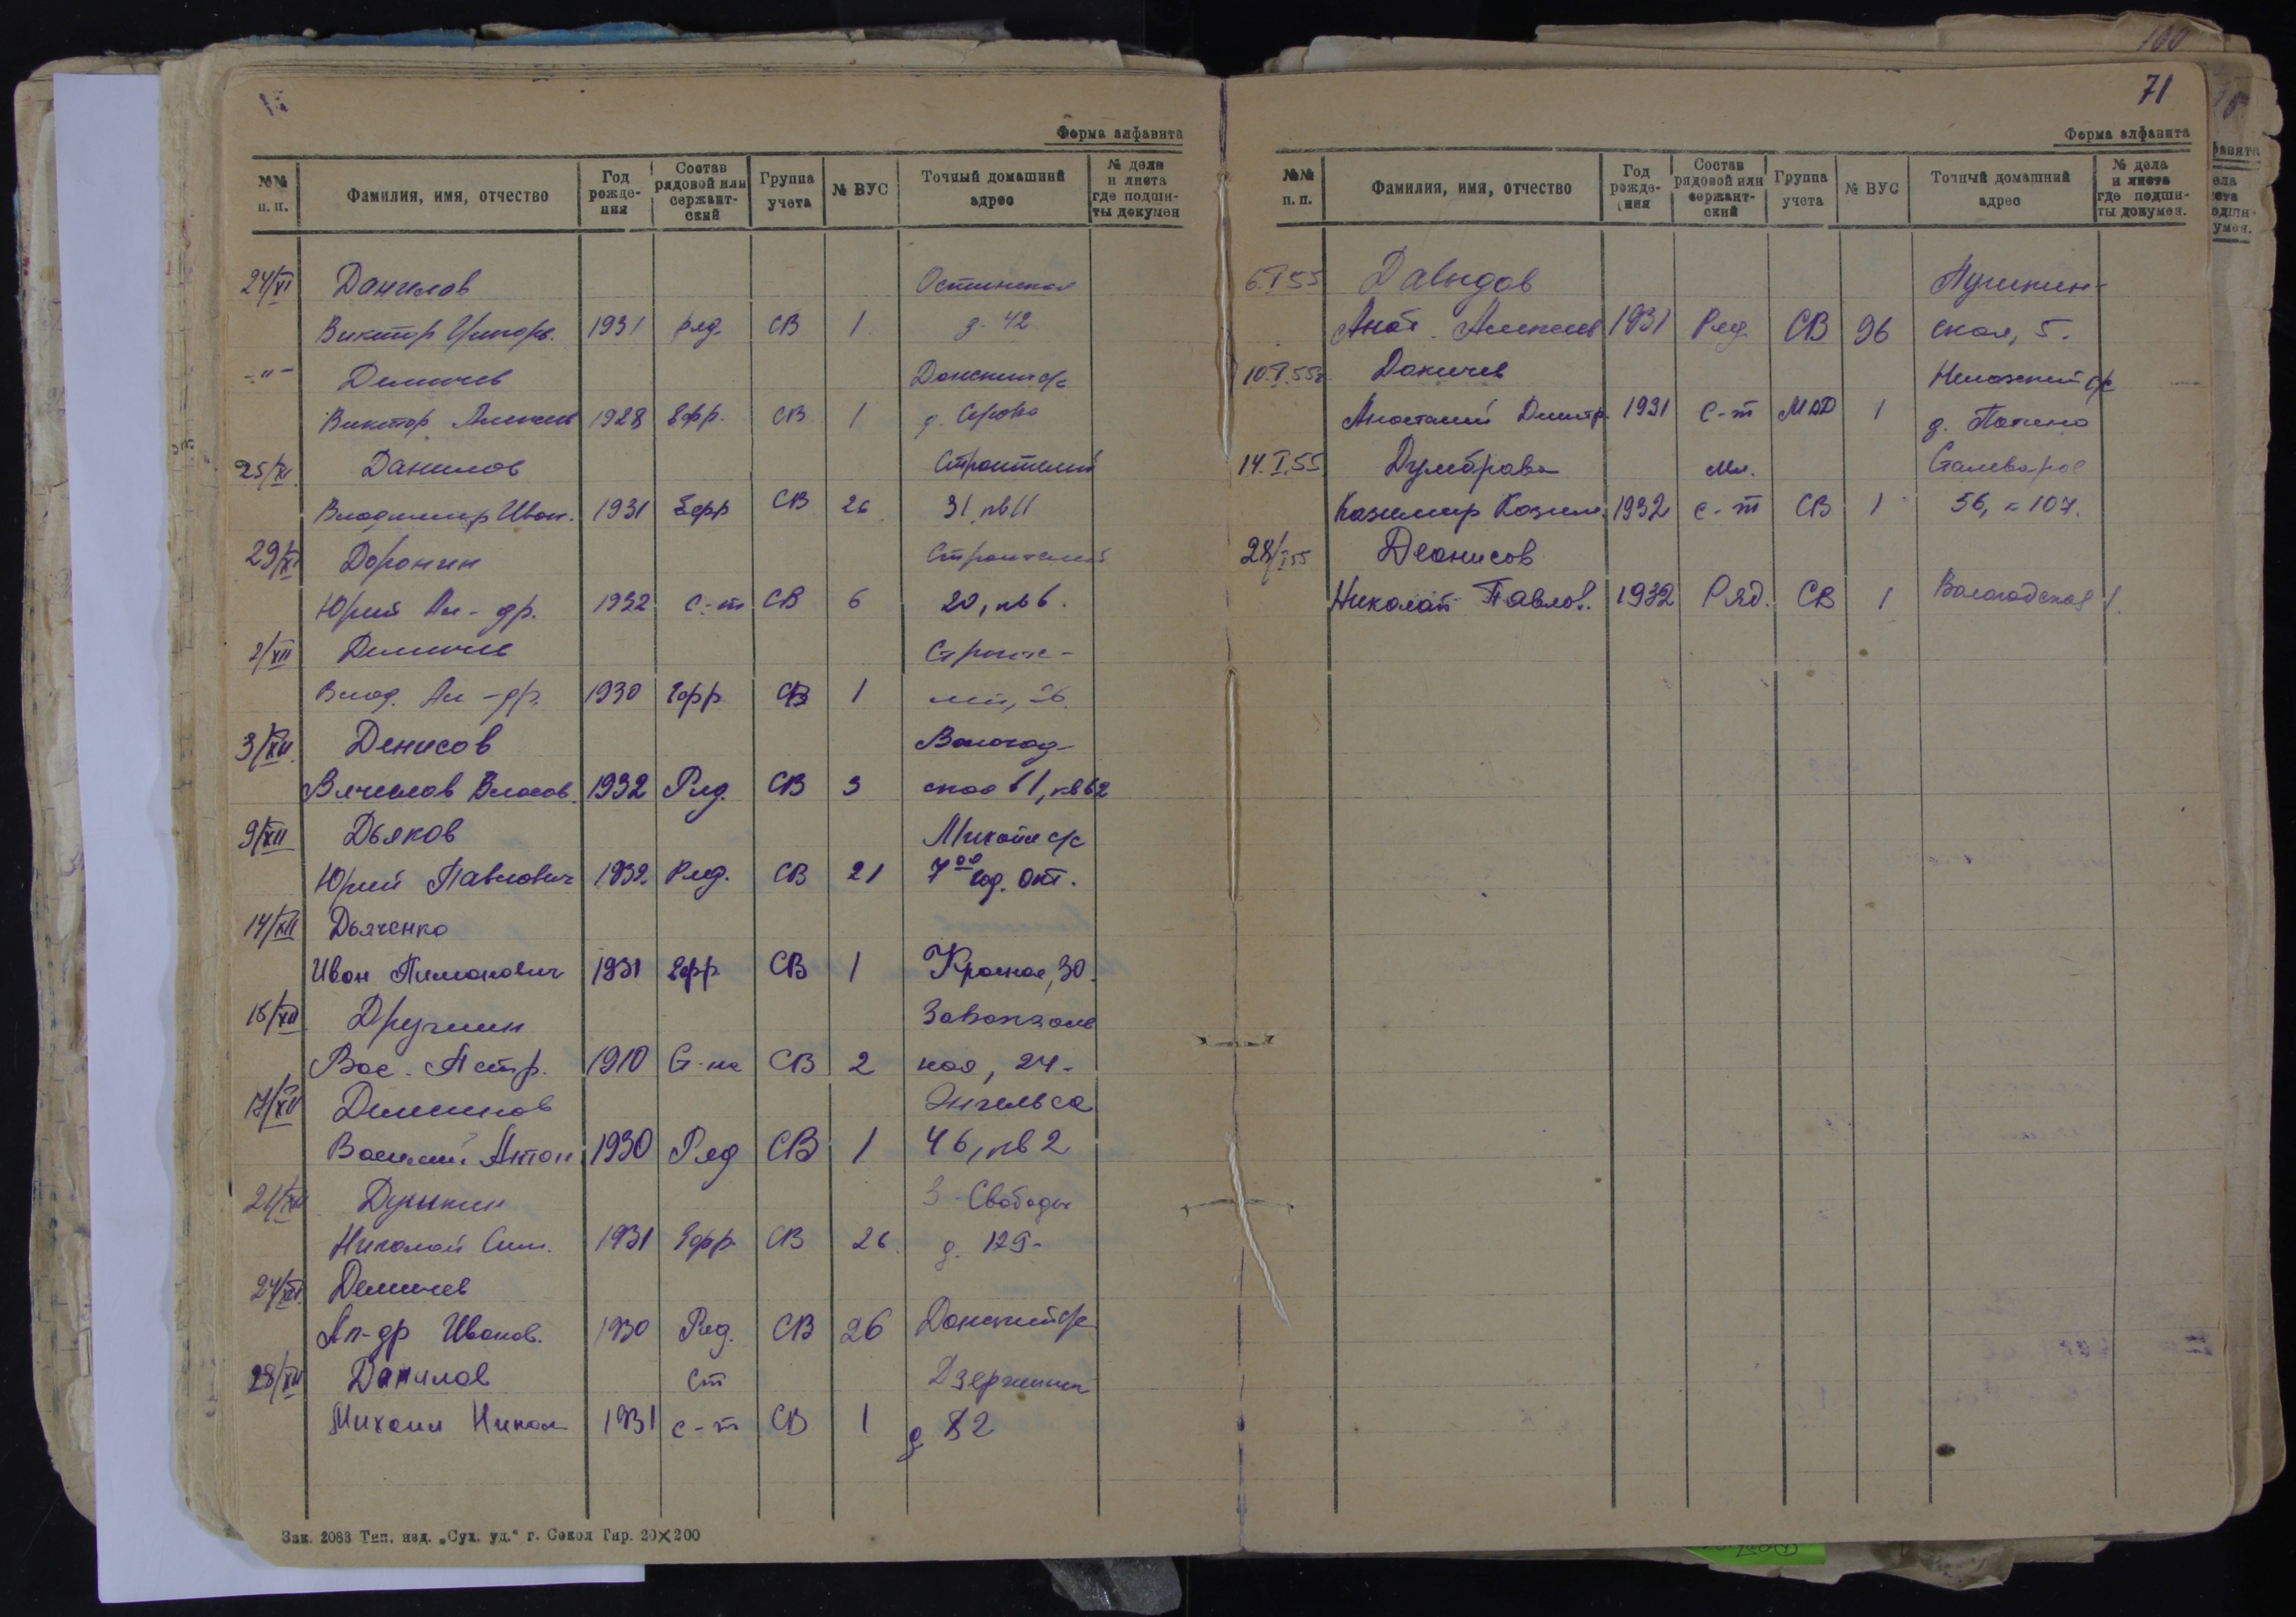 Форма алфавита
№№ п. п. Фамилия, имя, отчество Год рожде-ния Состав рядовой или сержант-ский Группа учета № ВУС Точный домашний адрес № дела и листа где подши-ты докумен
24/XI Данилов
Виктор Григорь. 1931 ряд. СВ 1 д. 42
-"- Демичев Донской с/с
Виктор Алексеев 1928 Ефр. СВ 1 д.
25/XI Данилов Строителей
Владимир Иван. 1931 Ефр СВ 26 31 кв 11
29/XI Доронин Строителей
Юрий Ал-др. 1932 с-т СВ 6 20, кв 6.
2/XII Демичев Строите-
Влад. Ал-др. 1930 Ефр СВ 1 лей,
3/XII Денисов Вологод-
Вячеслав Власов. 1932 Ряд. СВ 3 ская 11, кв 62
9/XII Дьяков с/с
Юрий Павлович 1932 Ряд. СВ 21 7оо год. Окт.
14/XII Дьяченко
Иван Пимонович 1931 Ефр СВ 1 Красная, 30.
15/XII Дружинин Завокзаль
Вас. Петр. 1910 СВ 2 ная, 24.
17/XII Энгельса
Василий Антон. 1930 Ряд СВ 1 46, кв 2
21/XII Свободы
Николай 1931 Ефр. СВ 26 д. 129.
24/XII Демичев
Ал-др Иванов. 1930 Ряд. СВ 26 Донской с/с
28/XII Данилов ст
Михаил Никол 1931 с-т СВ 1 д 82
Зак. 2083 Тип. изд. „Сух. уд.“ г. Сокол Тир. 20×200
100
71
Форма алфавита
№№ п. п. Фамилия, имя, отчество Год рожде-ния Состав рядовой или сержант-ский Группа учета № ВУС Точный домашний адрес № дела и листа где подши-ты докумен.
6.I 55 Давыдов Пушкин-
Анат. Алексеев 1931 Ряд. СВ 96 ская, 5.
10.I.55г. Докичев с/с
Анатолий Дмитр. 1931 с-т 1 д.
14.I.55 Думбрава мл. Сталеваров
Казимир Казим. 1932 с-т СВ 1 56, к 107.
28/I 55 Деонисов
Николай Павлов. 1932 Ряд. СВ 1 Вологодская 1.